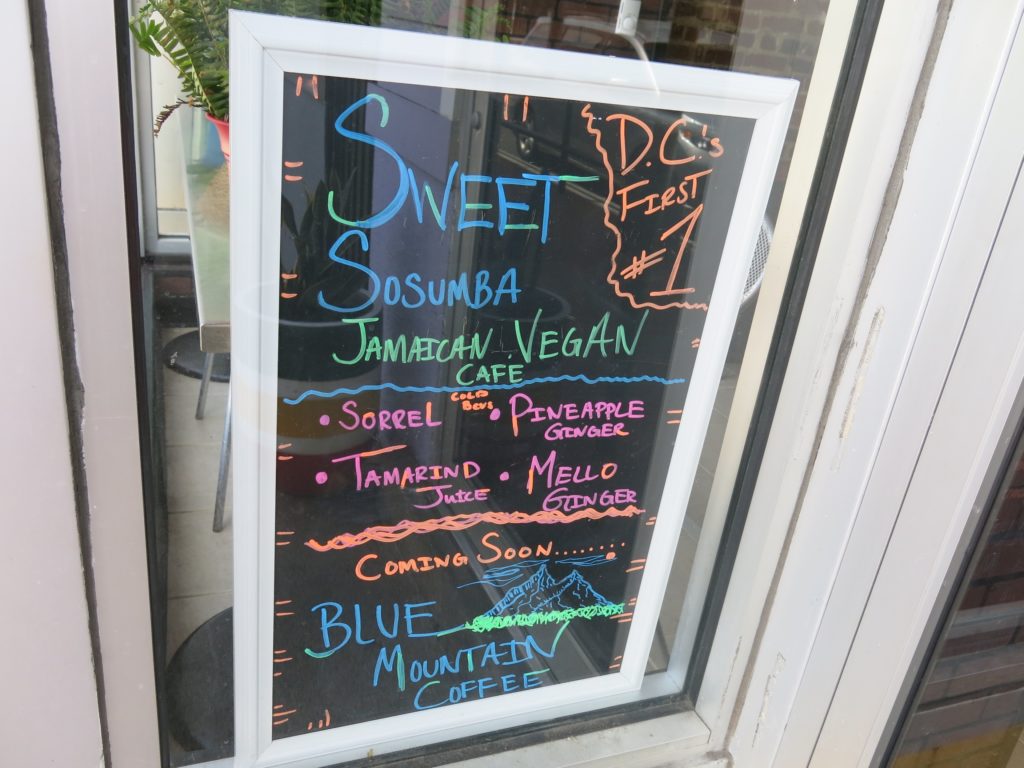 SWEET
SOSUMBA
D.C's
FIRST
#1
JAMAICAN VEGAN
CAFE
COLD
BEVS
• SORREL
• PINEAPPLE
GINGER
• TAMARIND
JUICE
• MELLO
GINGER
COMING SOON........
BLUE
MOUNTAIN
COFFEE